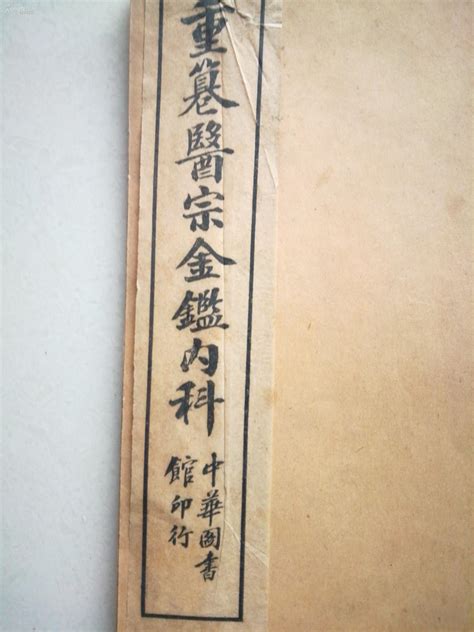 重篹醫宗金鑑内科
中華圖書
館印行